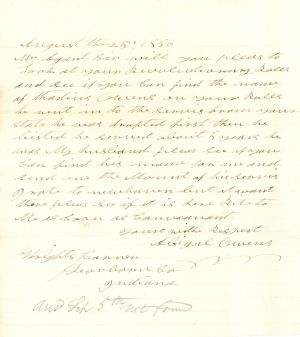 August the 25, 1850
Mr Agent Sir will you pleas to
Look at your Revolutionary Roles
and see if you Can find the name
of Thadius Owens on your Roles
he went in to the Servis from your
state he was drapted first then he
listed he served about 5 years he
was My husband pleas see if you
Can find his name for me and
send me the Mount of his servis
I rote to newhaven but it want
there pleas see if it is here Rite to
Me as soon as Convenant
Yours with Respect
Abigal Owens
Wrights Corner
Dearborn Co
Indiana
Ansd Sep 5th Not found